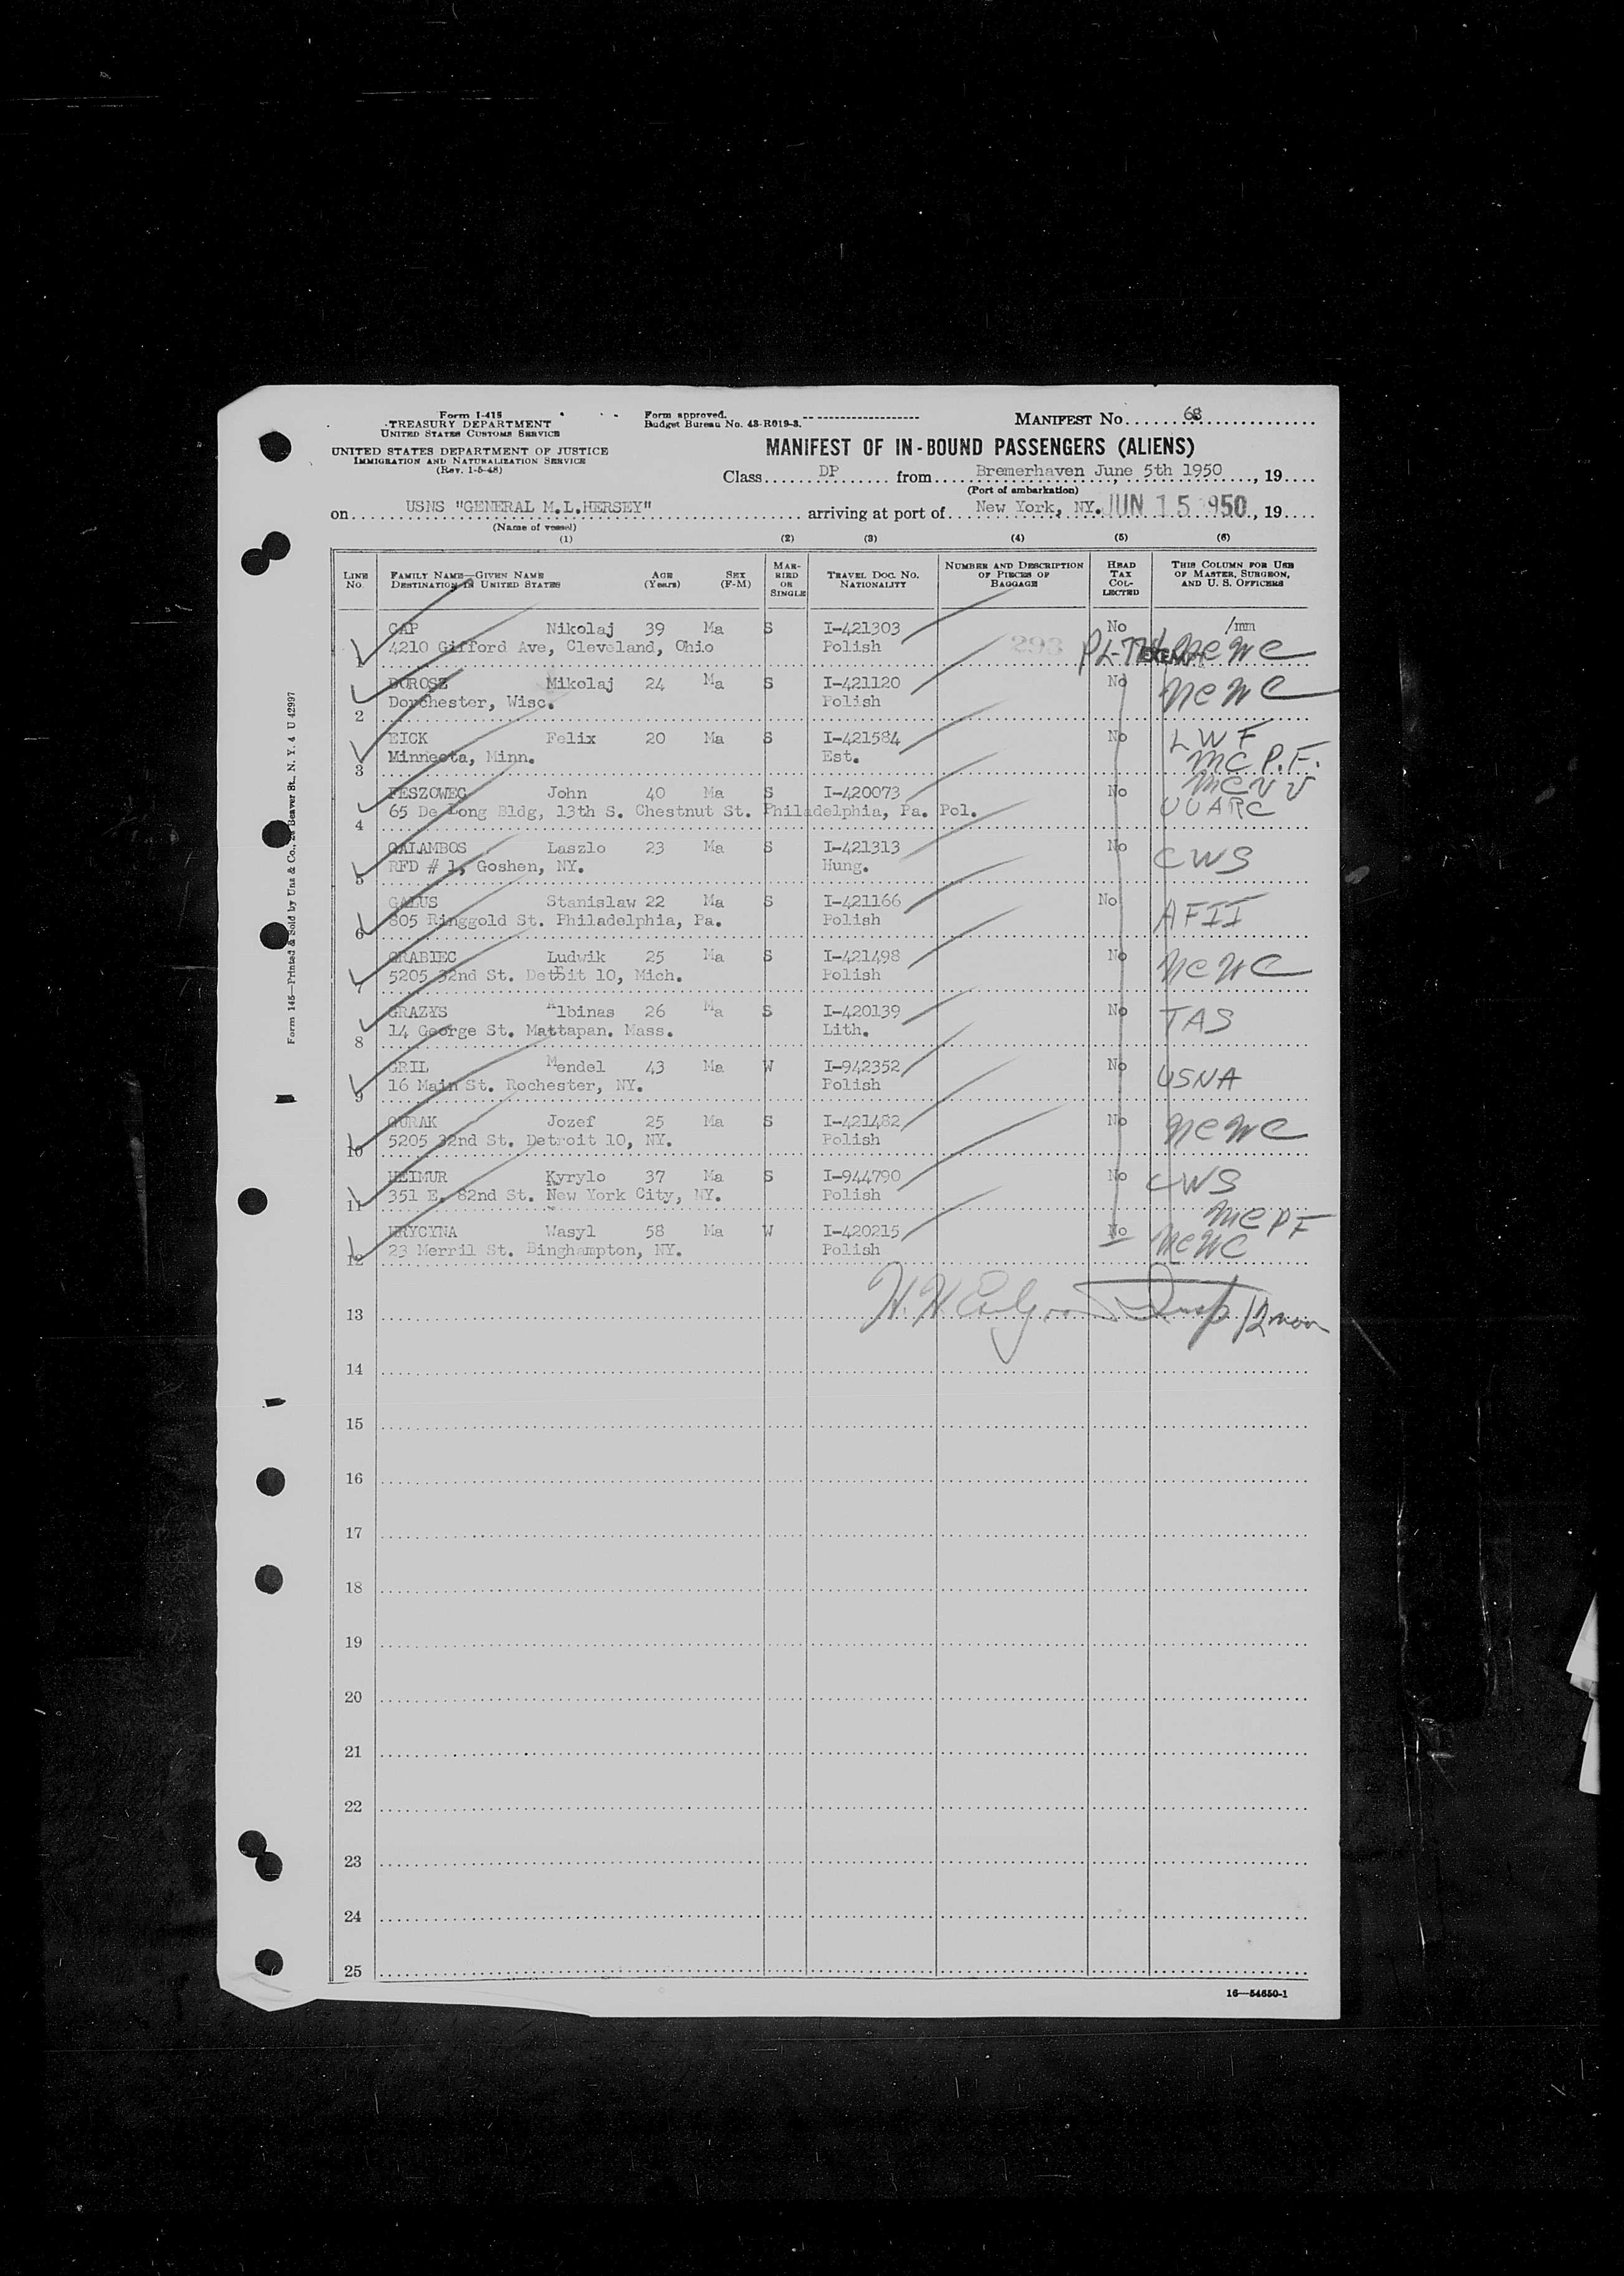 Form I-415
TREASURY DEPARTMENT
UNITED STATES CUSTOMS SERVICE
UNITED STATES DEPARTMENT OF JUSTICE
IMMIGRATION AND NATURALIZATION SERVICE
(Rev. 1-5-48)
Form approved.
Budget Bureau No. 43-R019-3.
MANIFEST No. 68
MANIFEST OF IN-BOUND PASSENGERS (ALIENS)
Class DP from Bremerhaven June 5th 1950, 19
(Port of embarkation)
on USNS "GENERAL M.L.HERSEY" arriving at port of New York, NY. JUN 15 1950, 19
(Name of vessel)
(1) (2) (3) (4) (5) (6)
LINE No. FAMILY NAME—GIVEN NAME DESTINATION IN UNITED STATES AGE (Years) SEX (F-M) MARRIED OR SINGLE TRAVEL DOC. NO. NATIONALITY NUMBER AND DESCRIPTION OF PIECES OF BAGGAGE HEAD TAX COLLECTED THIS COLUMN FOR USE OF MASTER, SURGEON, AND U. S. OFFICERS
CAP Nikolaj 39 Ma S I-421303 No /mm
1 4210 Gifford Ave, Cleveland, Ohio Polish 293 EXEMPT NCWC
DOROSZ Mikolaj 24 Ma S I-421120 No NCWC
2 Dorchester, Wisc. Polish
EICK Felix 20 Ma S I-421584 No LWF
3 Minneota, Minn. Est. MCP.F.
FESZOWEC John 40 Ma S I-420073 No
4 65 De Long Bldg, 13th S. Chestnut St. Philadelphia, Pa. Pol. UUARC
GALAMBOS Laszlo 23 Ma S I-421313 No CWS
5 RFD # 1, Goshen, NY. Hung.
GALUS Stanislaw 22 Ma S I-421166 No AFII
6 805 Ringgold St. Philadelphia, Pa. Polish
GRABIEC Ludwik 25 Ma S I-421498 No NCWC
7 5205 32nd St. Detroit 10, Mich. Polish
GRAZYS Albinas 26 Ma S I-420139 No TAS
8 14 George St. Mattapan. Mass. Lith.
GRIL Mendel 43 Ma W I-942352 No USNA
9 16 Main St. Rochester, NY. Polish
GURAK Jozef 25 Ma S I-421482 No NCWC
10 5205 32nd St. Detroit 10, NY. Polish
HEIMUR Kyrylo 37 Ma S I-944790 No CWS
11 351 E. 82nd St. New York City, NY. Polish
HRYCYNA Wasyl 58 Ma W I-420215 No MCPF
12 23 Merril St. Binghampton, NY. Polish NCWC
13
14
15
16
17
18
19
20
21
22
23
24
25
16—54650-1
Form 145—Printed & Sold by Unz & Co., 24 Beaver St., N. Y. 4 U 42997